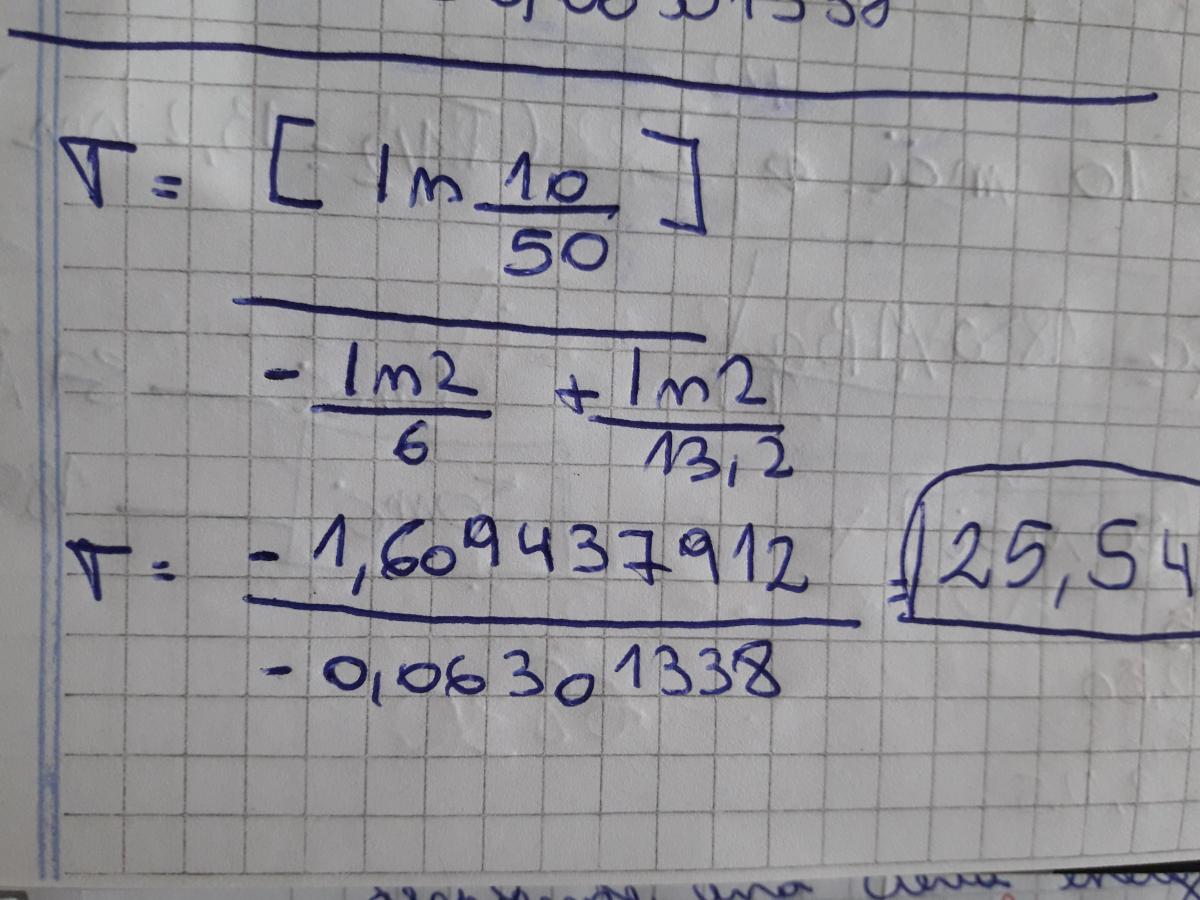 T = [ ln 10/50 ]
- ln2/6 + ln2/13,2
T = - 1,609437912 / - 0,06301338 = 25,54
una